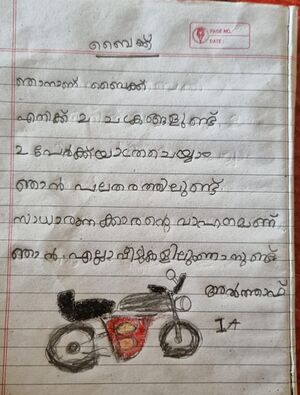 ബൈക്ക്
PAGE NO.
DATE
ഞാനാണ് ബൈക്ക്
എനിക്ക് 2 ചക്രങ്ങളുണ്ട്
2 പേർക്ക് യാത്രചെയ്യാം
ഞാൻ പലതരത്തിലുണ്ട്
സാധാരണക്കാരന്റെ വാഹനമണ്
ഞാൻ എല്ലാ വീടുകളിലുംഞാനുണ്ട്
അൽത്താഫ്
1A